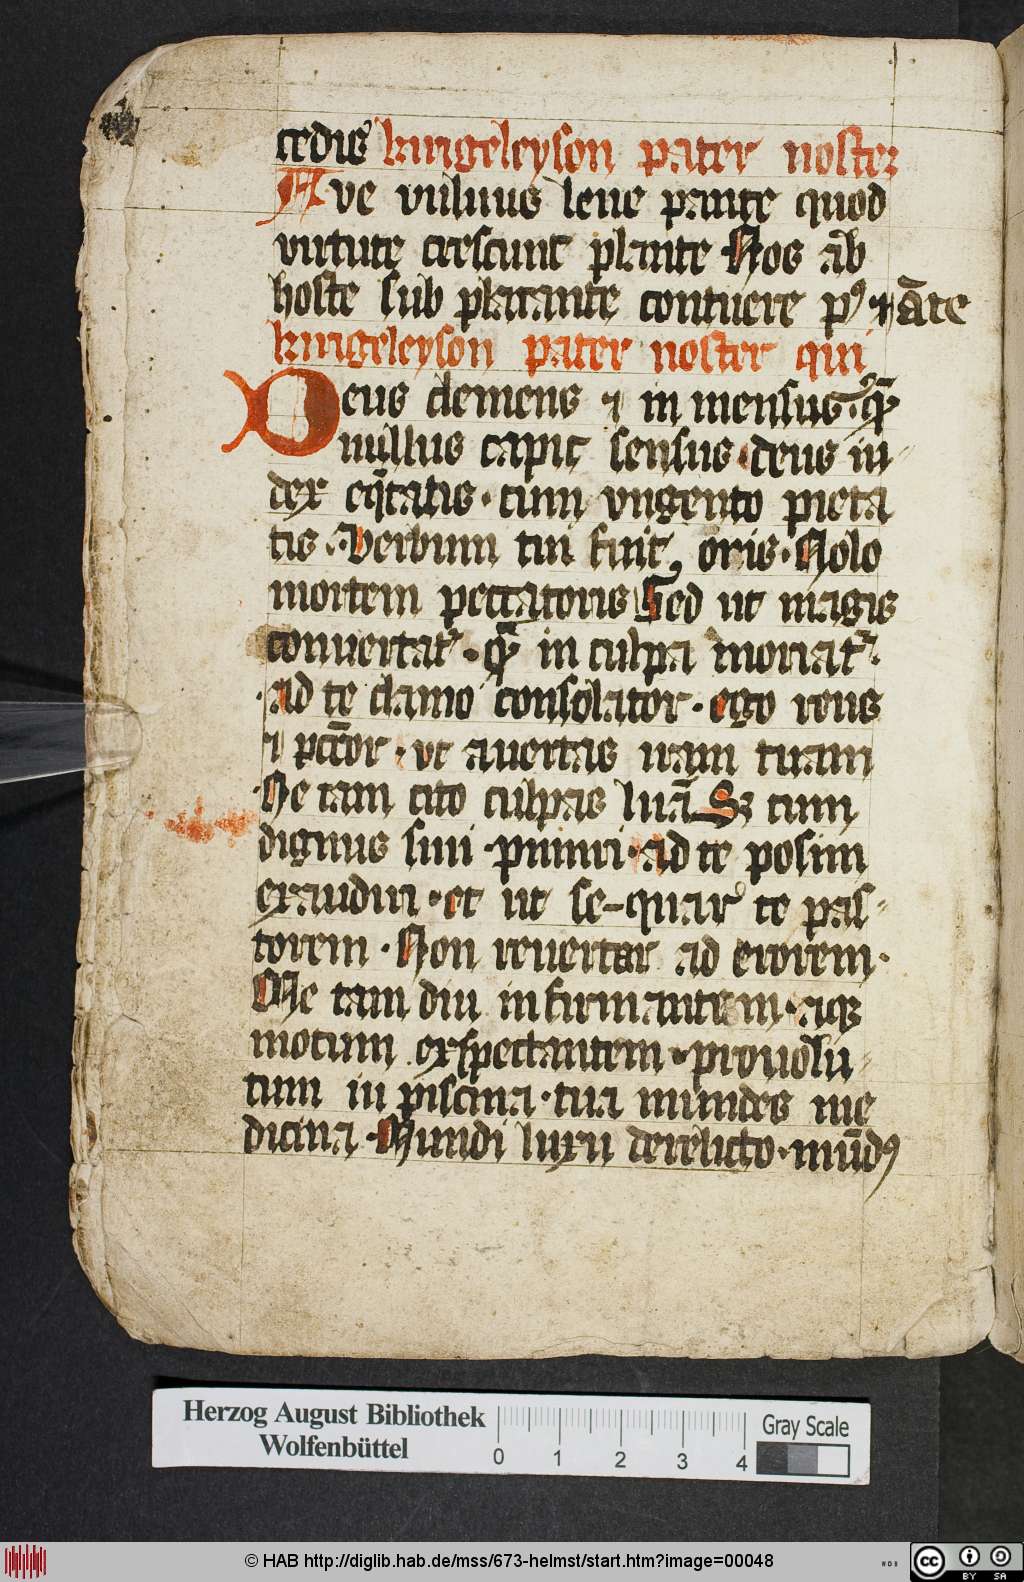 cedis kirigeleyson pater noster
Ave vulnus leue pange quod
virtute crescunt plante Nos ab
hoste sub platante contuere p⁹ ⁊ āte
kirigeleyson pater noster qui
Deus clemens ⁊ in mensus · qm̄
nullus capit sensus · deus iu
dex eq̄tatis · cum vngento pieta
tis · Verbum tui fuit oris · Nolo
mortem peccatoris Sed ut magis
conuertat᷑ · qm̄ in culpa moriat᷑ ·
ad te clamo consolator · ego reus
⁊ pctōr · vt auertas iram tuam
Ne tam cito culpas luā Sꝫ cum
dignus sim puniri · ad te posim
exaudiri · et ut se-quar te pas
torem · Non reuertar ad erorem ·
Me tam diu in firmantem · atqꝫ
motum exspectantem · prouolu
tum in piscina · tua mundes me
dicina · Mundi luxu derelicto · mūd⁹
Herzog August Bibliothek
Wolfenbüttel
0 1 2 3 4
Gray Scale
© HAB http://diglib.hab.de/mss/673-helmst/start.htm?image=00048
WDB
cc BY SA